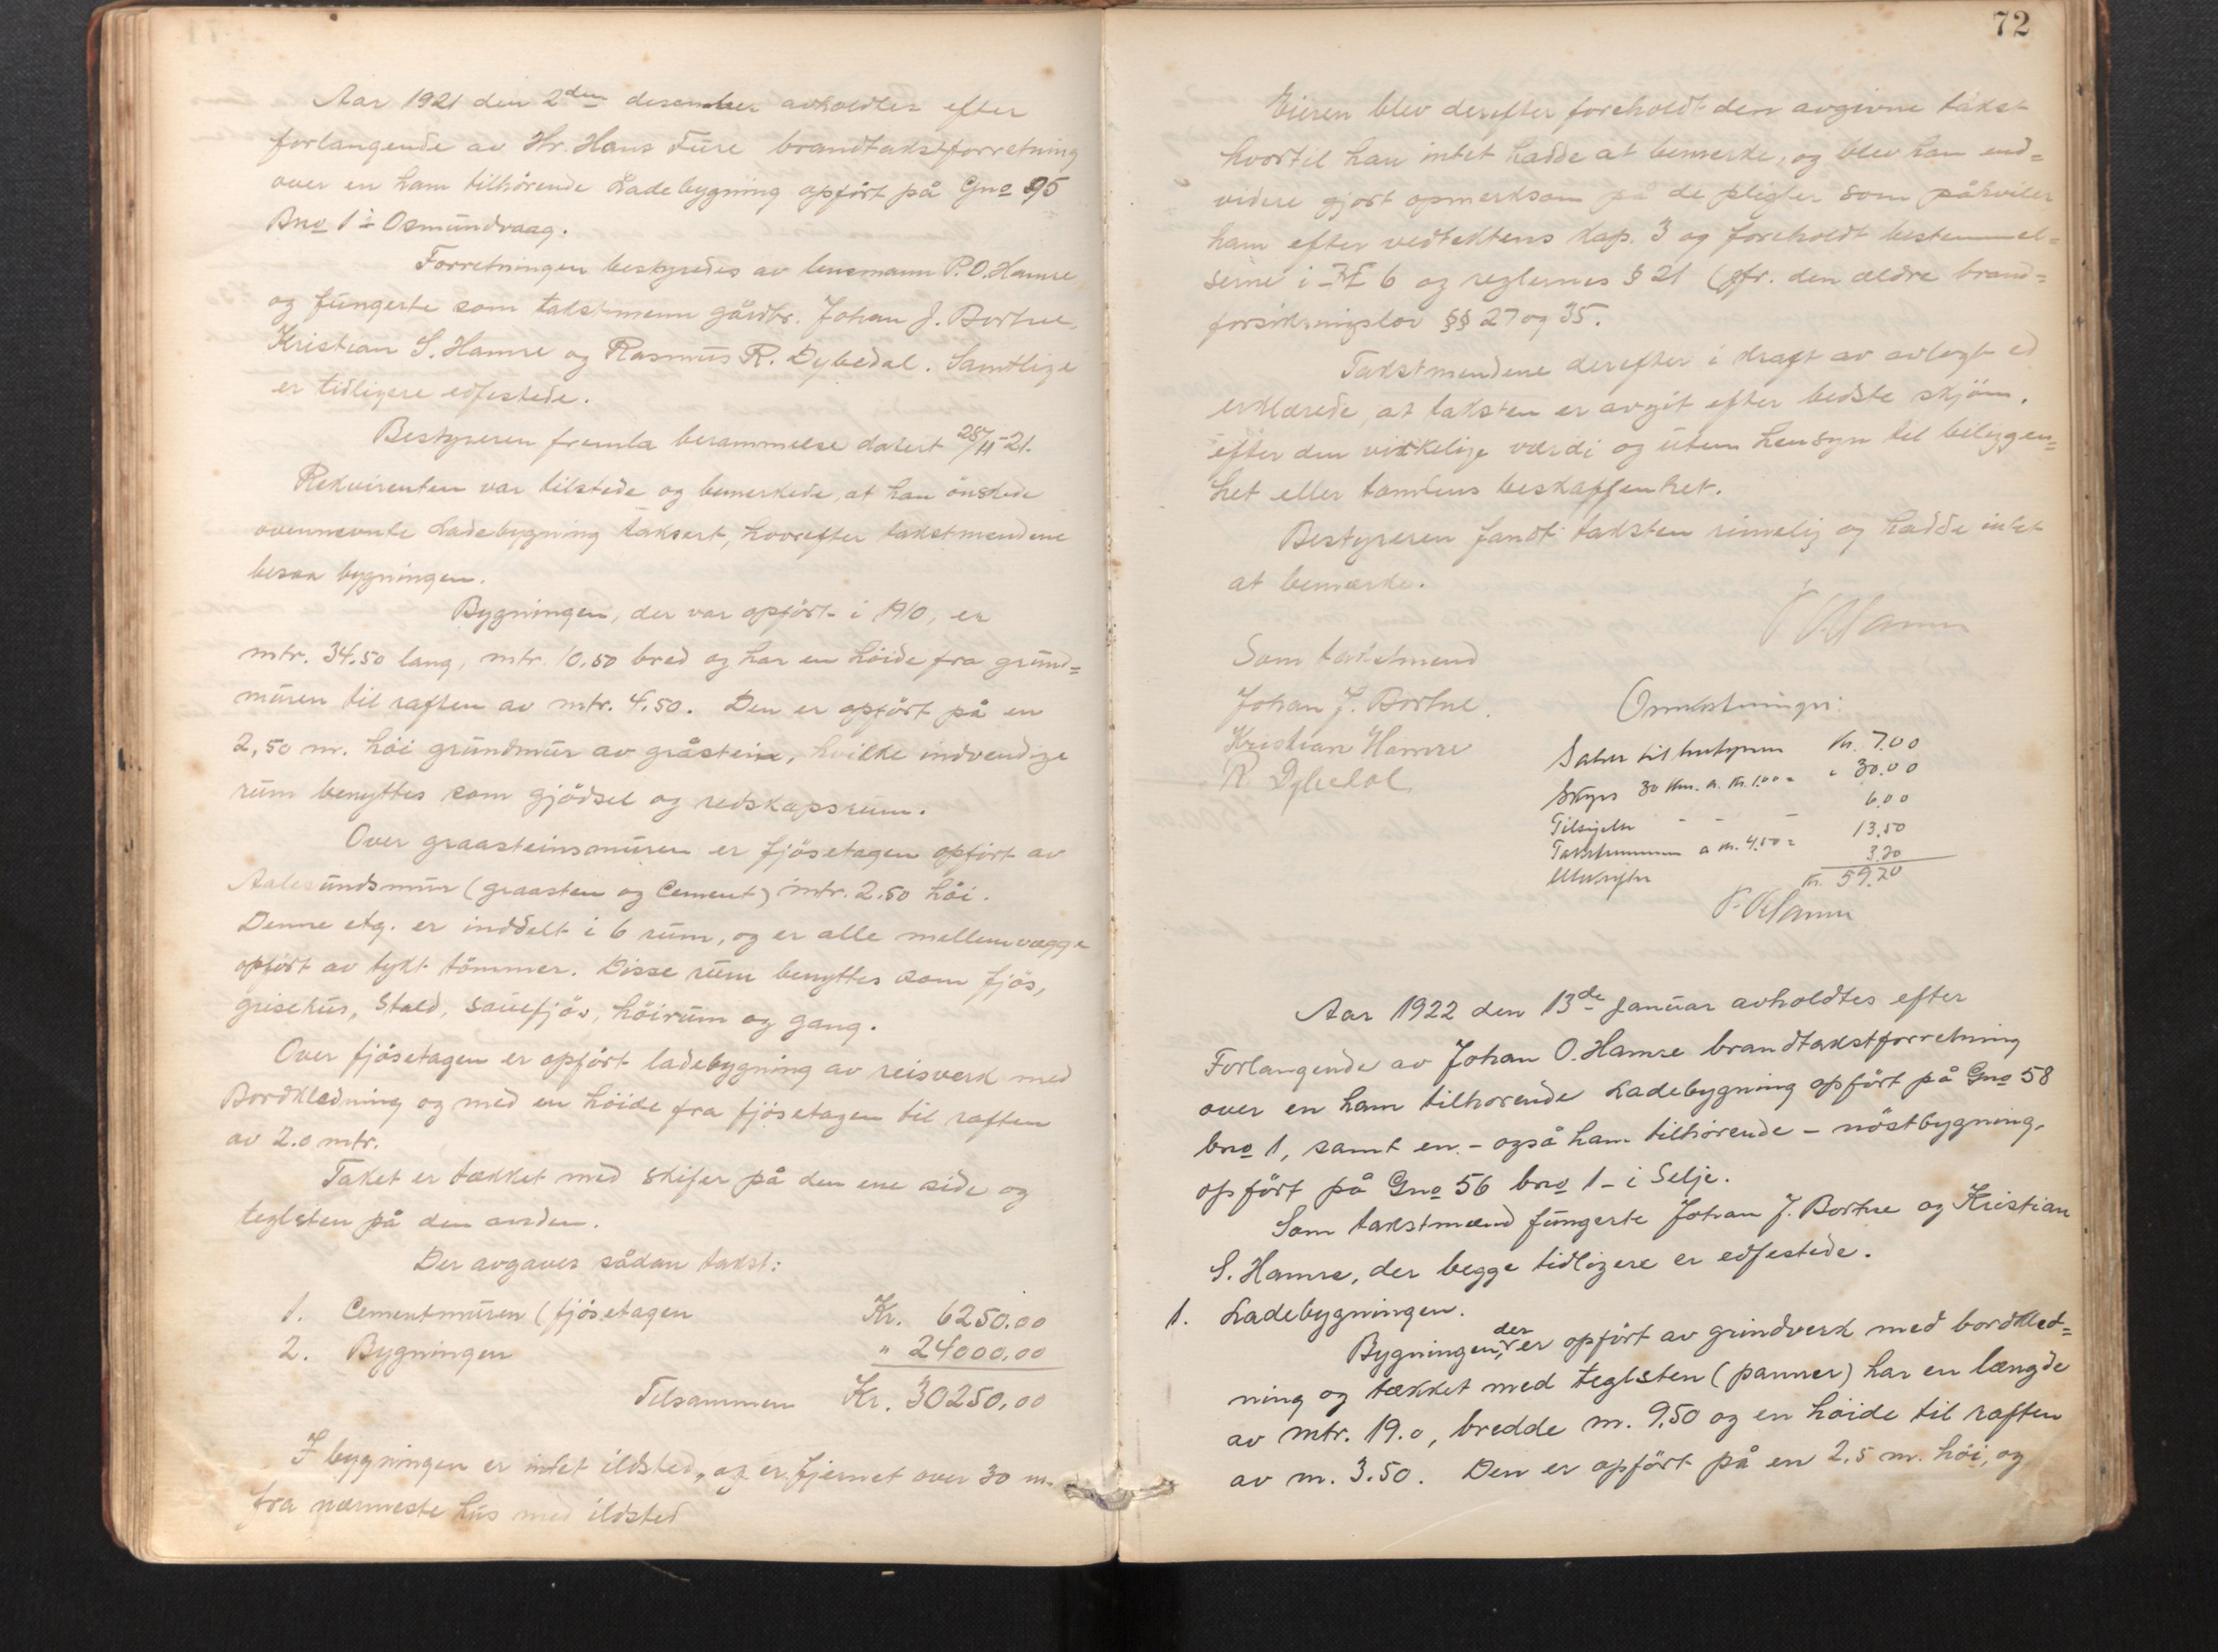 Aar 1921 den 2den desember avholdtes efter
forlangende av Hr. Hans Fure brandtakstforretning
over en ham tilhörende Ladebygning opfört på Gno 95
Bno 1 i Osmundvaag.
Forretningen bestyredes av lensmann P. O. Hamre
og fungerte som takstmenn gårdbr. Johan J. Bortne,
Kristian S. Hamre og Rasmus R. Dybedal. Samtlige
er tidligere edfestede.
Bestyreren fremla berammelse datert 28/11-21.
Rekvirenten var tilstede og bemerkede, at han önskede
ovennevnte Ladebygning taksert, hvorefter takstmendene
besaa bygningen.
Bygningen, der var opfört i 1910, er
mtr. 34.50 lang, mtr. 10.50 bred og har en höide fra grund=
muren til raften av mtr. 4.50. Den er opfört på en
2,50 m. höi grundmur av gråstein, hvilke indvendige
rum benyttes som gjödsel og redskapsrum.
Over graasteinsmuren er fjösetagen opfört av
Aalesundsmur (graasten og Cement) mtr. 2.50 höi.
Denne etg. er inddelt i 6 rum, og er alle mellemvægge
opfört av tykt tömmer. Disse rum benyttes som fjös,
grisehus, Stald, sauefjös, höirum og gang.
Over fjösetagen er opfört ladebygning av reisverk med
Bordkledning og med en höide fra fjösetagen til raften
av 2.0 mtr.
Taket er tækket med skifer på den ene side og
teglsten på den anden.
Der avgaves sådan takst:
1. Cementmuren (fjösetagen Kr. 6250.00
2. Bygningen " 24000.00
Tilsammen Kr. 30250.00
I bygningen er intet ildsted, og er fjernet over 30 m.
fra nærmeste hus med ildsted
72
Eieren blev derefter foreholdt den avgivne takst
hvortil han intet hadde at bemerke, og blev han end=
videre gjort opmerksom på de pligter som påhviler
ham efter vedtektens kap. 3 og foreholdt bestemmel=
serne i 6 og reglernes § 21 (jfr. den ældre brand=
forsikringslov §§ 27 og 35.
Takstmendene derefter i kraft av avlagt ed
erklærede, at taksten er avgit efter bedste skjön,
efter den virkelige værdi og uten hensyn til beliggen=
het eller tomtens beskaffenhet.
Bestyreren fandt taksten rimelig og hadde intet
at bemærke.
P. O. Hamre
Som takstmend
Johan J. Bortne.
Kristian Hamre
R. Dybedal.
Omkostninger:
Salær til bestyreren Kr. 7.00
Skyss 30 Km. a. Kr. 1.00 = " 30.00
Tilsigelse - - - 6.00
Takstmennen a Kr. 4.50 = 13.50
Utskrifter 3.20
Kr. 59.70
P. O. Hamre
Aar 1922 den 13de Januar avholdtes efter
Forlangende av Johan O. Hamre brandtakstforretning
over en ham tilhorende Ladebygning opfört på Gno 58
bno 1, samt en - også ham tilhörende - nöstbygning,
opfört på Gno 56 bno 1 - i Selje.
Som takstmænd fungerte Johan J. Bortne og Kristian
S. Hamre, der begge tidligere er edfestede.
1. Ladebygningen.
Bygningen, der er opfört av grindverk med bordkled=
ning og tækket med teglsten (panner) har en længde
av mtr. 19.0, bredde m. 9.50 og en höide til raften
av m. 3.50. Den er opfört på en 2.5 m. höi, og